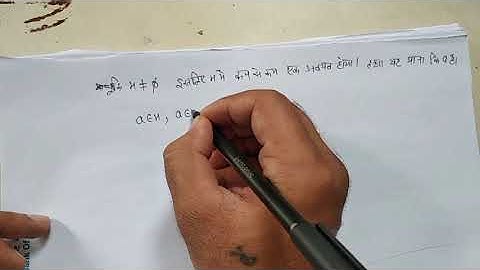 चूँकि H ≠ ϕ इसलिए H में कम से कम एक अवयव होगा। तथा यह माना कि a है।
a∈H, a∈